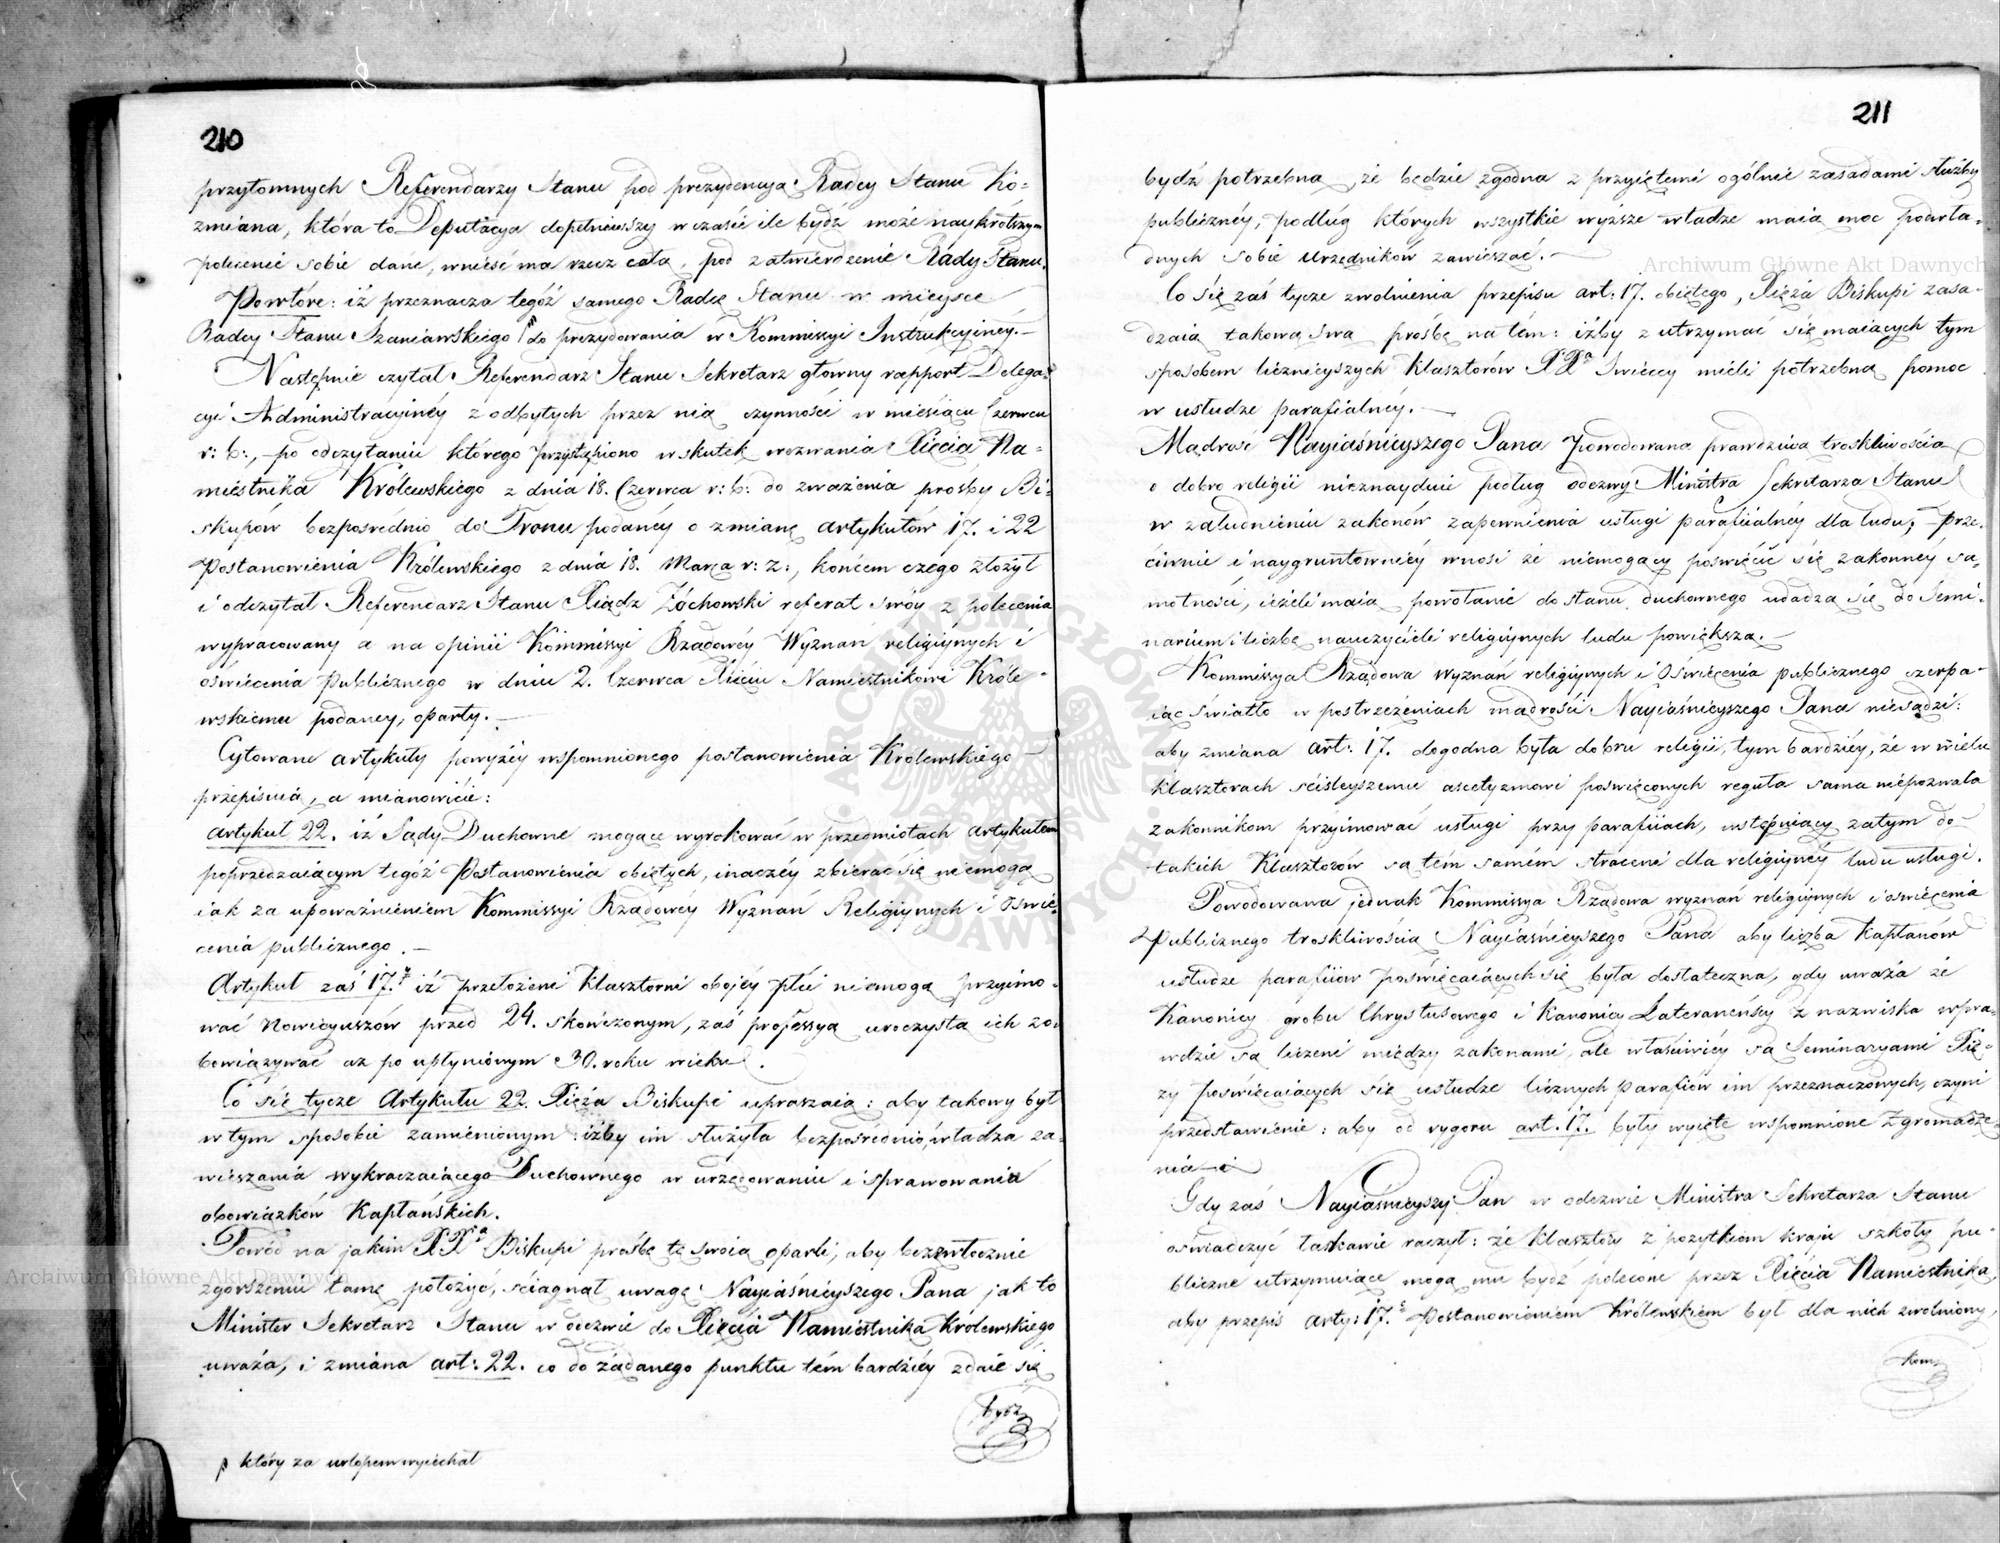 210
przytomnych Referendarzy Stanu pod prezydencyą Radcy Stanu Ko-
zmiana, która to Deputacya dopełniwszy w czasie ile bydź może naykrótszym
polecenie sobie dane, wnieść ma rzecz całą, pod zatwierdzenie Rady Stanu.
Powtóre: iż przeznacza tegóż samego Radcę Stanu w mieysce
Radcy Stanu Szaniawskiego do prezydowania w Kommissyi Instrukcyiney.—
Następnie czytał Referendarz Stanu Sekretarz główny rapport Delega-
cyi Administracyiney z odbytych przez nią czynności w miesiącu Czerwcu
r: b:, po odczytaniu którego przystąpiono w skutek wezwania Xięcia Na-
miestnika Królewskiego z dnia 18. Czerwca r: b: do zważenia prośby Bi-
skupów bezpośrednio do Tronu podanéy o zmianę artykułów 17. i 22
Postanowienia Królewskiego z dnia 18. Marca r: z:, końcem czego złożył
i odczytał Referendarz Stanu Xiądz Żóchowski referat swóy z polecenia
wypracowany a na opinii Kommissyi Rządowéy Wyznań religiynych i
oświecenia Publicznego w dniu 2. Czerwca Xięciu Namiestnikowi Króle-
wskiemu podaney, oparty.—
Cytowane artykuły powyżéy wspomnionego postanowienia Królewskiego—
przepisuią, a mianowicie:
artykuł 22. iż Sądy Duchowne mogące wyrokować w przedmiotach artykułem
poprzedzaiącym tegóż Postanowienia obiętych, inaczéy zbierać się niemogą
iak za upoważnieniem Kommissyi Rządowéy Wyznań Religiynych i Oświe-
cenia publicznego.—
Artykuł zaś 17.ty iż przełożeni klasztorni obojéy płci niemogą przyimo-
wać Nowicyuszów przed 24. skończonym, zaś professyą uroczystą ich zo-
bowiązywać aż po upłynionym 30. roku wieku.
Co się tycze Artykułu 22. Xięża Biskupi upraszaią: aby takowy był
w tym sposobie zamienionym: iżby im służyła bezpośrednio, władza za-
wieszania wykraczaiącego Duchownego w urzędowaniu i sprawowaniu
obowiązków Kapłańskich.
Powód na jakim XX.ża Biskupi prośbę tę swoią oparli, aby bezzwłocznie
zgorszeniu tamę położyć, ściągnął uwagę Nayiaśnieyszego Pana jak to
Minister Sekretarz Stanu w odezwie do Xięcia Namiestnika Królewskiego
uważa, i zmiana art: 22. co do żądanego punktu tém bardziéy zdaie się
bydź
który za urlopem wyiechał
211
bydź potrzebną, że będzie zgodną z przyiętemi ogólnie zasadami służby
publicznéy, podług których wszystkie wyższe władze maią moc podwła-
dnych sobie urzędników zawieszać.—
Co się zaś tycze zwolnienia przepisu art: 17. obiętego, Xięża Biskupi zasa-
dzaią takową swą prośbę na tém: iżby z utrzymać się maiących tym
sposobem licznieyszych klasztorów XX.ża Świeccy mieli potrzebną pomoc
w usłudze parafialnéy.—
Mądrość Nayiaśnieyszego Pana powodowana prawdziwą troskliwością
o dobro religii nieznayduie podług odezwy Ministra Sekretarza Stanu
w zaludnieniu zakonów zapewnienia usługi parafiialnéy dla ludu; prze-
ciwnie i naygruntowniéy wnosi że niemogący poświęcić się zakonnéy sa-
motności, ieżeli maią powołanie do stanu duchownego udadzą się do Semi-
narium i liczbę nauczycieli religiynych ludu powiększą.—
Kommissya Rządowa wyznań religiynych i Oświecenia publicznego czerpa-
iąc światło w postrzeżeniach mądrości Nayiaśnieyszego Pana niesądzi:
aby zmiana art: 17. dogodną była dobru religii, tym bardziéy, że w wielu
klasztorach ściśleyszemu ascetyzmowi poświęconych reguła sama niepozwala
zakonnikom przyimować usługi przy parafiiach, wstępuiący zatym do
takich Klasztorów są tém samém straceni dla religiynéy ludu usługi.
Powodowana jednak Kommissya Rządowa wyznań religiynych i oświecenia
Publicznego troskliwością Nayiaśnieyszego Pana aby liczba Kapłanów
usłudze parafiiów poświęcaiących się była dostateczną, gdy uważa że
Kanonicy grobu Chrystusowego i Kanonicy Lateraneńscy z nazwiska wpra-
wdzie są liczeni między zakonami, ale właściwiéy są Seminaryami Xię-
ży poświęcaiących się usłudze licznych parafiiów im przeznaczonych, czyni
przedstawienie: aby od rygoru art. 17. były wyięte wspomnione Zgromadze-
nia
Gdy zaś Nayiaśnieyszy Pan w odezwie Ministra Sekretarza Stanu
oświadczyć łaskawie raczył: że klasztory z pożytkiem kraiu szkoły pu-
bliczne utrzymuiące mogą mu bydź polecone przez Xięcia Namiestnika,
aby przepis arty: 17. Postanowieniem Królewskiém był dla nich zwolniony,
Kom
Archiwum Główne Akt Dawnych
Archiwum Główne Akt Dawnych
ARCHIWUM GŁÓWNE AKT DAWNYCH